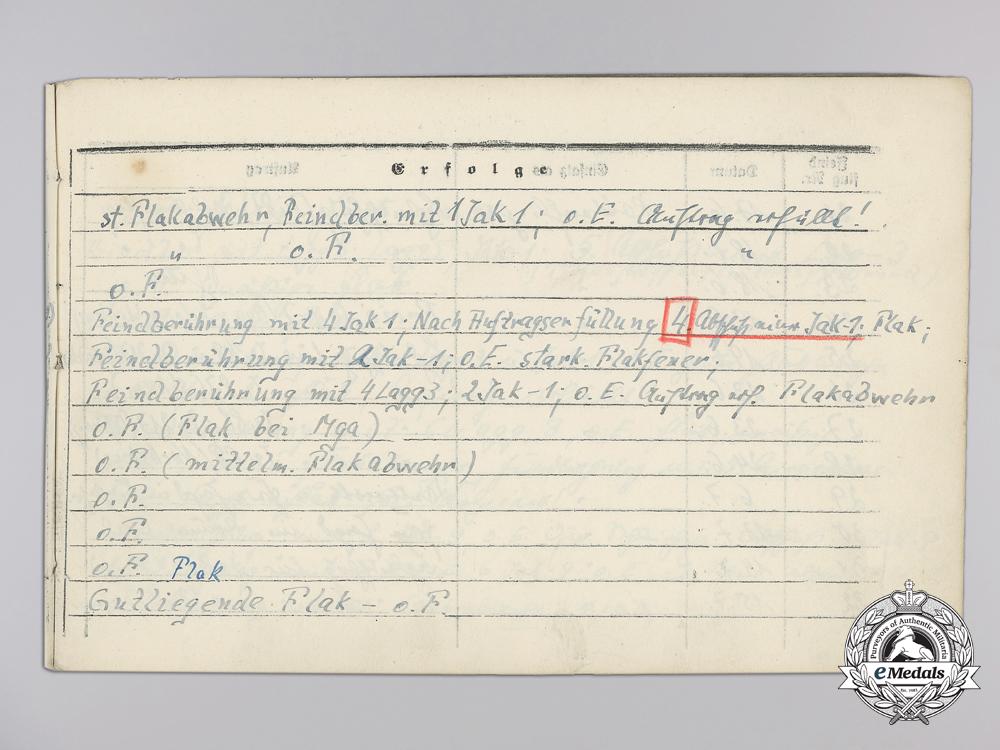 Erfolge
st. Flakabwehr, Feindber. mit 1 Jak 1; o.E. Auftrag erfüllt!
" o.F. "
o.F.
Feindberührung mit 4 Jak 1; Nach Auftragserfüllung 4. Abschuß einer Jak-1. Flak;
Feindberührung mit 2 Jak-1; o.E. stark. Flakfeuer;
Feindberührung mit 4 Lagg3; 2 Jak-1; o.E. Auftrag erf. Flakabwehr
o.F. (Flak bei Mga)
o.F. (mittelm. Flakabwehr)
o.F.
o.F.
o.F. Flak
Gutliegende Flak - o.F.
Purveyors of Authentic Militaria
eMedals